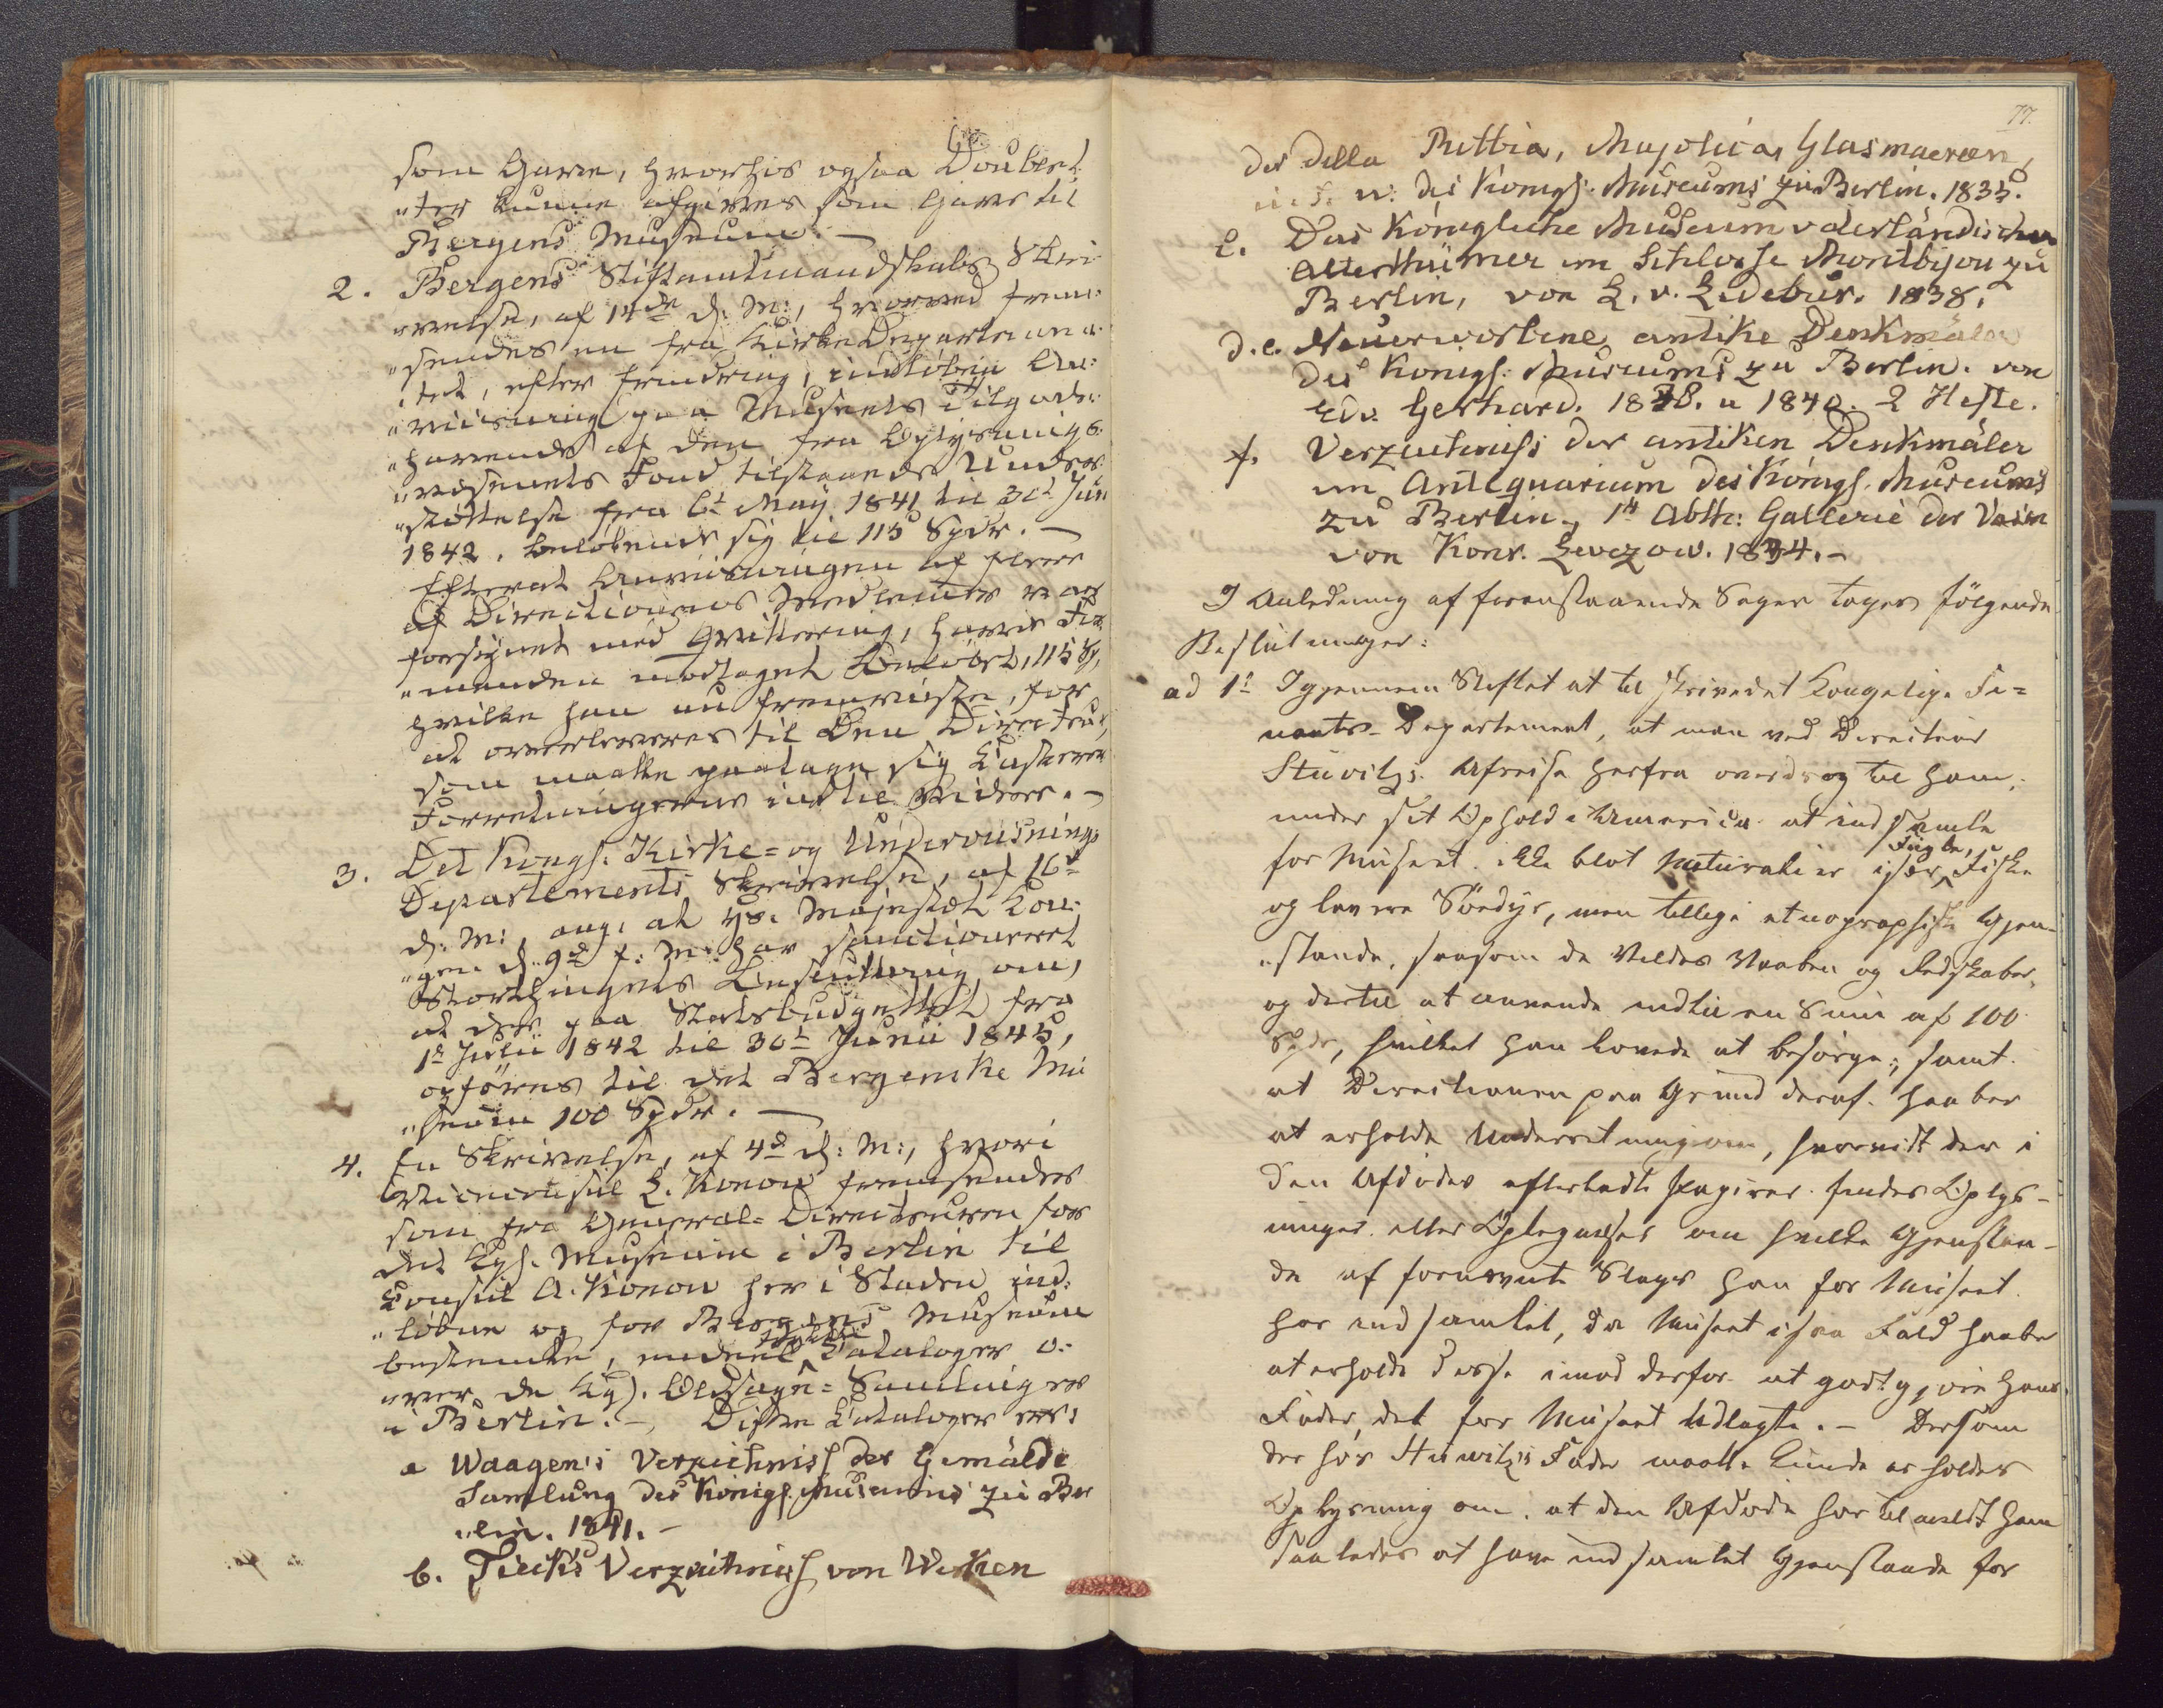 som Gave, hvorhos ogsaa Doublet
"ter kunne afgives som Gave til
Bergens Museum. —
2. Bergens Stiftamtmandskabs Skri
"velse, af 14de d. M:, hvorved frem:
"sendes en fra Kirke Departemen:
"tet, efter Erindring, indløben An:
"viisning paa Museets Tilgode:
"havende af den fra Oplysnings:
"væsenets Fond tilstaaede Under
"støttelse fra 1t May 1841 til 30t Juni
1842, beløbende sig til 115 Spdr. —
Efterat Anviisningen af flere
af Directionens Medlemmer var
forsynet med Qvittering, havde For
"manden modtaget Beløbet, 115 Sp,
hvilke han nu fremviiste, for
at overleveres til den Directeur,
som maatte paatage sig Casserer
Forretningerne indtil Videre. —
3. Det Kongl. Kirke= og Underviisnings
Departements Skrivelse, af 16de
d. M:, ang. at Hs. Majestæt Kon:
"gen d. 9de f: M: har sanctioneret
Storthingets Beslutning om,
at der paa Statsbudgettet fra
1t Julii 1842 til 30t Junii 1845,
opføres til det Bergenske Mu
"seum 100 Spdr. —
4. En Skrivelse, af 4de d: M:, hvori
Viceconsul L. Konow fremsender
som fra General=Directeuren for
det Kgl. Museum i Berlin til
Consul A. Konow her i Staden ind:
"løbne og for Bergens Museum
bestemte, endeel trykte Cataloger o:
"ver de Kgl. Oldsags=Samlinger
i Berlin. — Disse Cataloger ere:
a Waagen's Verzeichniss der Gemälde
Samlung des Königl. Museums zu Ber
"lin. 1841. —
b. Tieck's Verzeichniss von Werken
77.
der della Rubbia, Majolica, Glasmaleren
u: des Königl: Museums zu Berlin. 1835.
c. Das Königliche Museum vaterländischer
Alterthümer im Schlosse Monbijou zu
Berlin, von L. v. Ledebur. 1838.
d.e. Neuerworbene antike Denkmäler
des Königl: Museums zu Berlin. von
Edv. Gerhard. 1838. u 1840. 2 Hefte.
f. Verzeichniss der antiken Denkmäler
im Antiquarium des Königl. Museums
zu Berlin, 1te Abth: Gallerie der Vasen
von Konr. Levezow. 1834. —
I Anledning af foranstaaende Sager toges følgende
Beslutninger:
ad 1: Igjennem Stiftet at tilskrive det Kongelige Fi=
nants-Departement, at man ved Directeur
Stuvitz's Afreise herfra overdrog til ham,
under sit Ophold i America at indsamle
for Museet ikke blot Naturalier især Fugle, Fiske
og lavere Sødyr, men tillige etnographiske Gjen-
"stande, saasom de Vildes Vaaben og Redskaber,
og dertil at anvende indtil en Sum af 100
Spdr, hvilket han lovede at besørge; samt
at Directionen paa Grund deraf haaber
at erholde Underretning om, hvorvidt der i
den Afdødes efterladte Papirer findes Oplys-
ninger eller Optegnelser om hvilke Gjenstan-
de af fornævnte Slags han for Museet
har indsamlet, da Museet i saa Fald haaber
at erholde disse imod derfor at godtgjøre hans
Fader, det for Museet Udlagte. — Dersom
der hos Stuwitz's Fader maatte kunde erholdes
Oplysning om, at den Afdøde har tilmeldt ham
saaledes at have indsamlet Gjenstande for